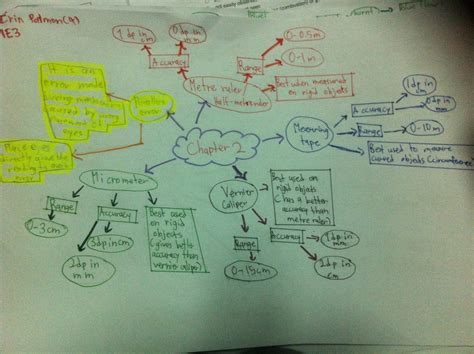 Erin Patmon(4)
1E3
1 dp in
cm
0dp in
mm
Accuracy
0-0.5m
0-1m
Range
Metre ruler/
Half-metre ruler
Best when measured
on rigid objects
It is an
error made
eyes
Parallax
error
directly
Chapter 2
Measuring
tape
Accuracy
1dp in
cm
0dp in
mm
Range
0-10m
Best used to measure
curved objects (circumference)
Micrometer
Range
0-3cm
Accuracy
3dp in cm
2dp in
mm
Best used
on rigid
objects
(gives better
accuracy than
vernier caliper)
Vernier
Caliper
Best used on
rigid objects
(has a better
accuracy than
metre ruler)
Range
0-15cm
Accuracy
1dp in
mm
2dp in
cm